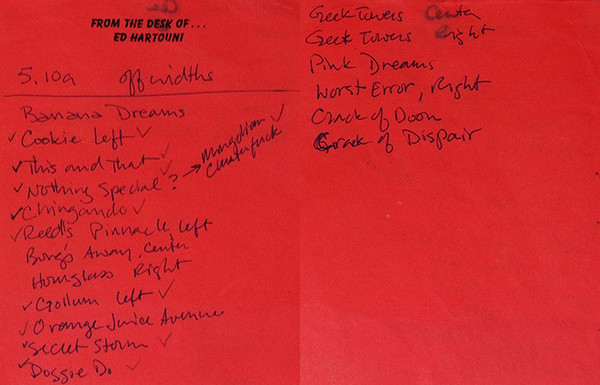 FROM THE DESK OF...
ED HARTOUNI
5.10a offwidths
Banana Dreams
✓ Cookie Left ✓
✓ This and That ✓
✓ Nothing Special? → Mongolian Clusterfuck ✓
✓ Chingando ✓
✓ Reed's Pinnacle Left
Bong's Away, Center
Hourglass Right
✓ Gollum Left ✓
✓ Orange Juice Avenue
✓ Secret Storm ✓
✓ Doggie Do ✓
Geek Towers Center
Geek Towers Right
Pink Dreams
Worst Error, Right
Crack of Doom
Crack of Dispair